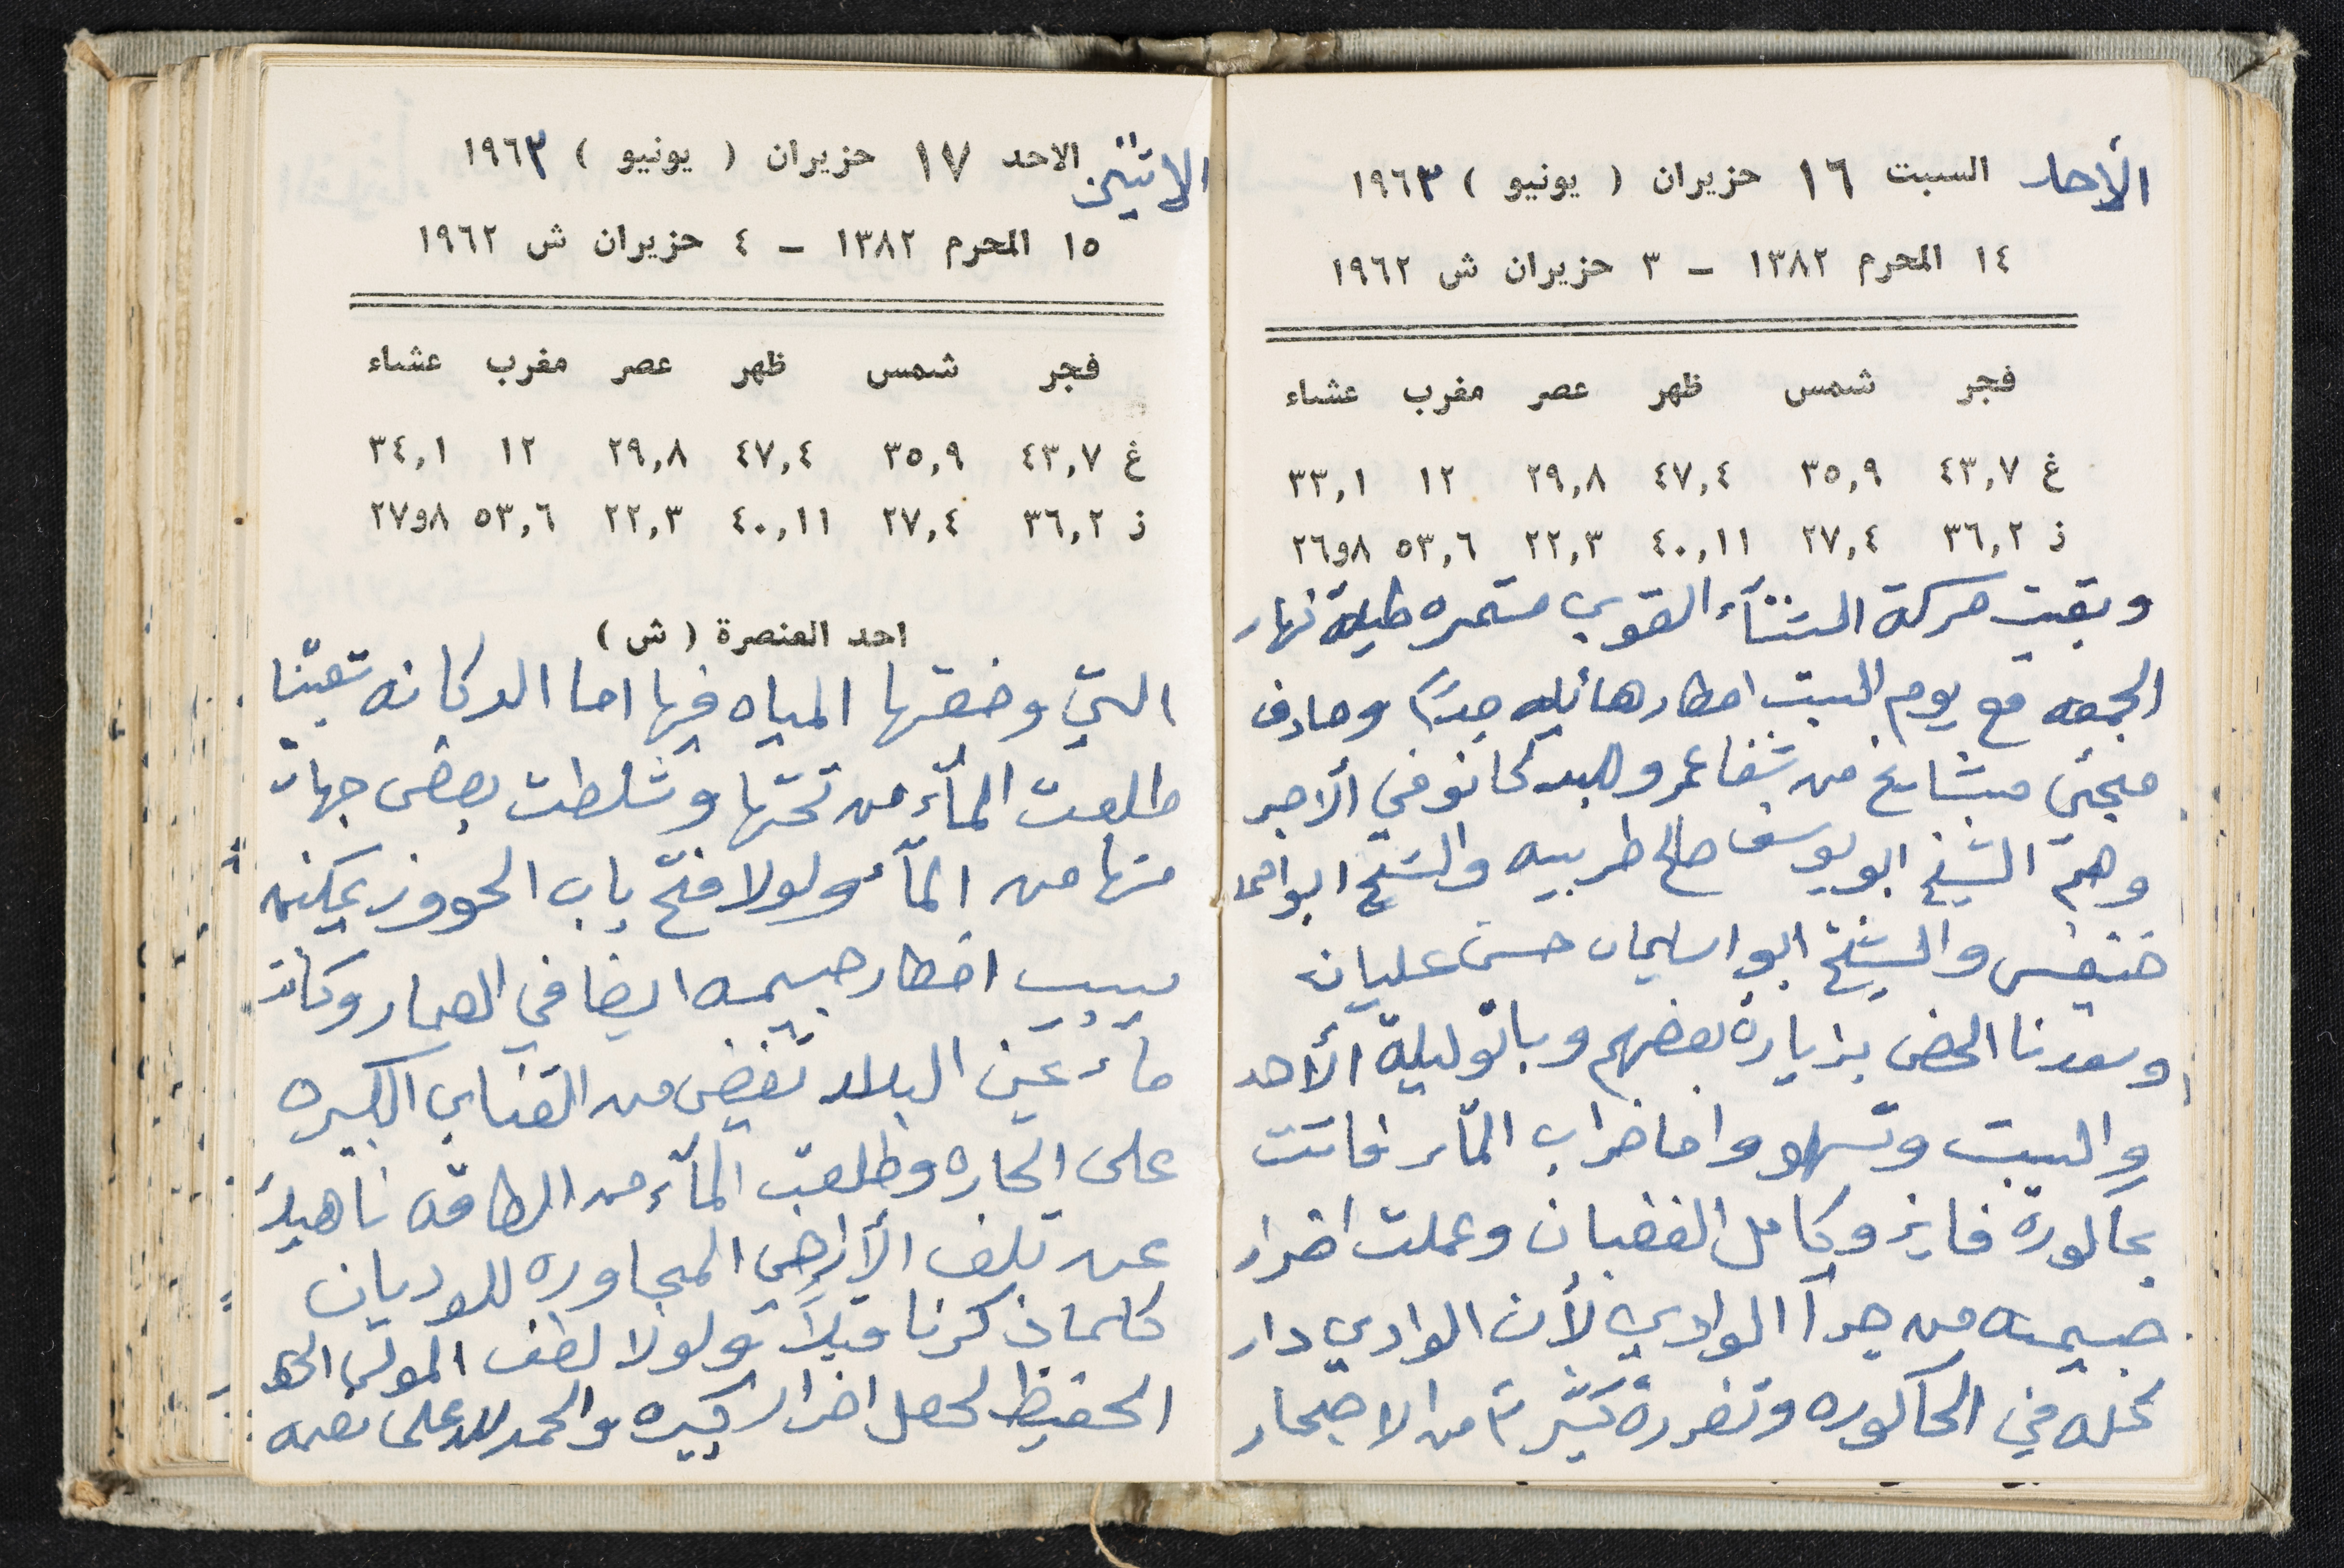 الأحد السبت ١٦ حزيران ( يونيو ) ١٩٦٣
١٤ المحرم ١٣٨٢ – ٣ حزيران ش ١٩٦٢
فجر شمس ظهر عصر مغرب عشاء
غ ٤٣,٧ ٣٥,٩ ٤٧,٤ ٢٩,٨ ١٢ ٣٣,١
ذ ٣٦,٢ ٢٧,٤ ٤٠,١١ ٢٢,٣ ٥٣,٦ ٨و٢٦
وبقيت حركة الشتآء القوي مستمره طيلة نهار
الجمعه مع يوم السبت امطار هائله جدًا وصادف
مجئي مشايخ من شفاعمرو للبلد كانو في الأجر
وهم الشيخ ابو يوسف صالح طربيه والشيخ ابو امحمد
خنيفس والشيخ ابو اسليمان حسن عليان
وسعدنا الحض بزيارة بعضهم وباتو ليلة الأحد
والبيت وتسهلو واما ضراب المآء فاتت
بحاكورة فايز وكامل الغضبان وعملت اضرار
جسيمه من جرآ الوادي لأن الوادي دار
كله في الحاكوره وتضررة كثيرة من الاحجار
الاثنين الاحد ١٧ حزيران ( يونيو ) ١٩٦٣
١٥ المحرم ١٣٨٢ – ٤ حزيران ش ١٩٦٢
فجر شمس ظهر عصر مغرب عشاء
غ ٤٣,٧ ٣٥,٩ ٤٧,٤ ٢٩,٨ ١٢ ٣٤,١
ذ ٣٦,٢ ٢٧,٤ ٤٠,١١ ٢٢,٣ ٥٣,٦ ٨و٢٧
احد العنصرة ( ش )
التي وضعتها المياه فيها اما الدكانه تبعتنا
طلعت المآء من تحتها وشلطت بعض جهات
منها من المآء ولولا فتح باب الحووز يمكنه
يسبب اخطار جسيمه ايضا في العمار وكانت
ماء عين البلد تفيض من القناي الكبيره
على الحاره وطلعت المآء من الطاقه ناهيك
عن تلف الأراضي المجاوره للوديان
كلما ذكرنا قبلاً ولولا لطف المولى
الحفيظ لحصل اضرار كبيره والحمد لله على نعمه